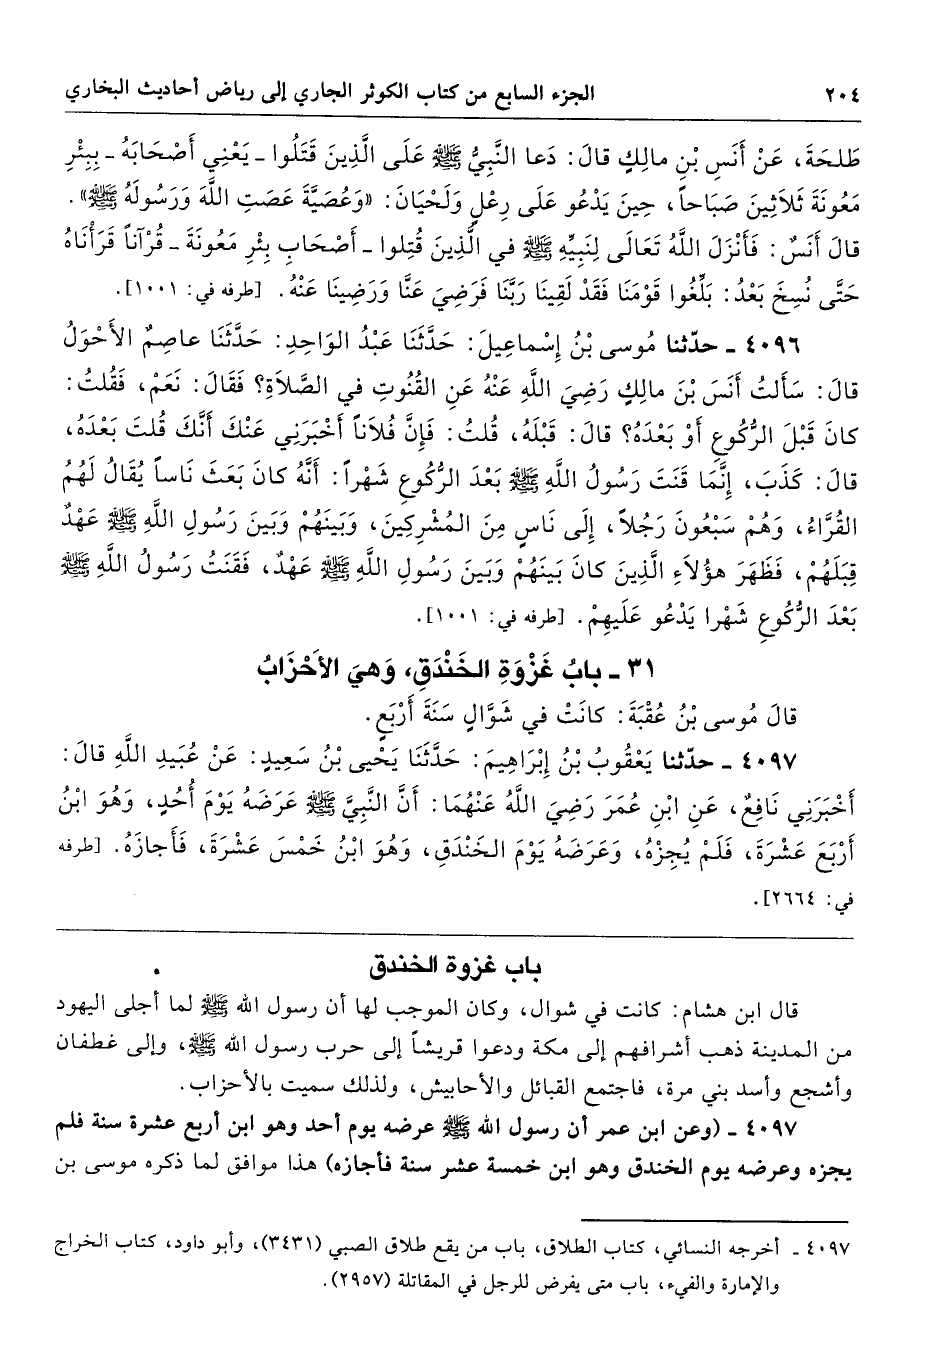 ٢٠٤ الجزء السابع من كتاب الكوثر الجاري إلى رياض أحاديث البخاري
طَلحَةَ، عَنْ أَنَسِ بْنِ مالِكٍ قالَ: دَعا النَّبِيُّ ﷺ عَلَى الَّذِينَ قَتَلُوا ـ يَعْنِي أَصْحَابَهُ ـ بِبِئْرِ
مَعُونَةَ ثَلاَثِينَ صَبَاحاً، حِينَ يَدْعُو عَلَى رِعْلٍ وَلَحْيَانَ: «وَعُصَيَّةَ عَصَتِ اللَّهَ وَرَسُولَهُ ﷺ».
قالَ أَنَسٌ: فَأَنْزَلَ اللَّهُ تَعَالَى لِنَبِيِّهِ ﷺ في الَّذِينَ قُتِلوا ـ أَصْحَابِ بِئْرِ مَعُونَةَ ـ قُرْآناً قَرَأْنَاهُ
حَتَّى نُسِخَ بَعْدُ: بَلِّغُوا قَوْمَنَا فَقَدْ لَقِينَا رَبَّنَا فَرَضِيَ عَنَّا وَرَضِينَا عَنْهُ. [طرفه في: ١٠٠١].
٤٠٩٦ ـ حدّثنا مُوسى بْنُ إِسْماعِيلَ: حَدَّثَنَا عَبْدُ الوَاحِدِ: حَدَّثَنَا عاصِمٌ الأَحْوَلُ
قالَ: سَأَلتُ أَنَسَ بْنَ مالِكٍ رَضِيَ اللَّهُ عَنْهُ عَنِ القُنُوتِ في الصَّلاَةِ؟ فَقَالَ: نَعَمْ، فَقُلتُ:
كانَ قَبْلَ الرُّكُوعِ أَوْ بَعْدَهُ؟ قالَ: قَبْلَهُ، قُلتُ: فَإِنَّ فُلاَناً أَخْبَرَنِي عَنْكَ أَنَّكَ قُلتَ بَعْدَهُ،
قالَ: كَذَبَ، إِنَّمَا قَنَتَ رَسُولُ اللَّهِ ﷺ بَعْدَ الرُّكُوعِ شَهْراً: أَنَّهُ كانَ بَعَثَ ناساً يُقَالُ لَهُمُ
القُرَّاءُ، وَهُمْ سَبْعُونَ رَجُلاً، إِلَى نَاسٍ مِنَ المُشْرِكِينَ، وَبَيْنَهُمْ وَبَينَ رَسُولِ اللَّهِ ﷺ عَهْدٌ
قِبَلَهُمْ، فَظَهَرَ هؤُلاَءِ الَّذِينَ كانَ بَينَهُمْ وَبَينَ رَسُولِ اللَّهِ ﷺ عَهْدٌ، فَقَنَتُ رَسُولُ اللَّهِ ﷺ
بَعْدَ الرُّكُوعِ شَهْرا يَدْعُو عَلَيهِمْ. [طرفه في: ١٠٠١].
٣١ ـ بابُ غَزْوَةِ الخَنْدَقِ، وَهيَ الأَحْزَابُ
قالَ مُوسى بْنُ عُقْبَةَ: كانَتْ في شَوَّالٍ سَنَةَ أَرْبَعٍ.
٤٠٩٧ ـ حدّثنا يَعْقُوبُ بْنُ إِبْرَاهِيمَ: حَدَّثَنَا يَحْيى بْنُ سَعِيدٍ: عَنْ عُبَيدِ اللَّهِ قالَ:
أَخْبَرَنِي نَافِعٌ، عَنِ ابْنِ عُمَرَ رَضِيَ اللَّهُ عَنْهُمَا: أَنَّ النَّبِيَّ ﷺ عَرَضَهُ يَوْمَ أُحُدٍ، وَهُوَ ابْنُ
أَرْبَعَ عَشْرَةَ، فَلَمْ يُجِزْهُ، وَعَرَضَهُ يَوْمَ الخَنْدَقِ، وَهُوَ ابْنُ خَمْسَ عَشْرَةَ، فَأَجازَهُ. [طرفه
في: ٢٦٦٤].
باب غزوة الخندق
قال ابن هشام: كانت في شوال، وكان الموجب لها أن رسول الله ﷺ لما أجلى اليهود
من المدينة ذهب أشرافهم إلى مكة ودعوا قريشاً إلى حرب رسول الله ﷺ، وإلى غطفان
وأشجع وأسد بني مرة، فاجتمع القبائل والأحابيش، ولذلك سميت بالأحزاب.
٤٠٩٧ ـ (وعن ابن عمر أن رسول الله ﷺ عرضه يوم أحد وهو ابن أربع عشرة سنة فلم
يجزه وعرضه يوم الخندق وهو ابن خمسة عشر سنة فأجازه) هذا موافق لما ذكره موسى بن
٤٠٩٧ ـ أخرجه النسائي، كتاب الطلاق، باب من يقع طلاق الصبي (٣٤٣١)، وأبو داود، كتاب الخراج
والإمارة والفيء، باب متى يفرض للرجل في المقاتلة (٢٩٥٧).